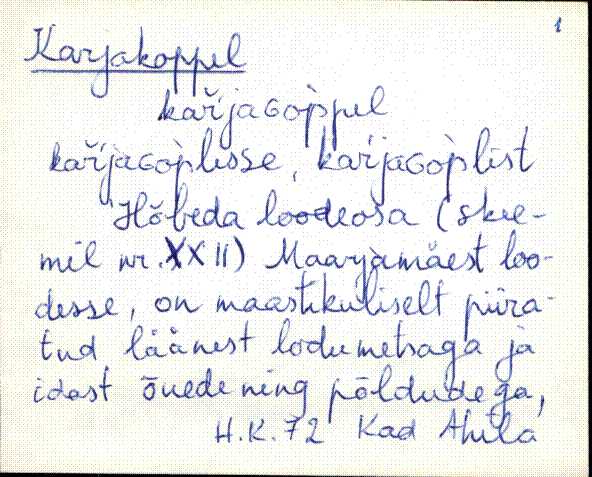 1
Karjakoppel
kaŕjaGop̀pel
kaŕjaGop̀lisse, kaŕjaGop̀list
Hõbeda loodeosa (skee-
mil nr. XXII) Maarjamäest loo-
desse, on maastikuliselt piira-
tud läänest lodumetsaga ja
idast õuede ning põldudega,
H.K. 72 Kad Ahula